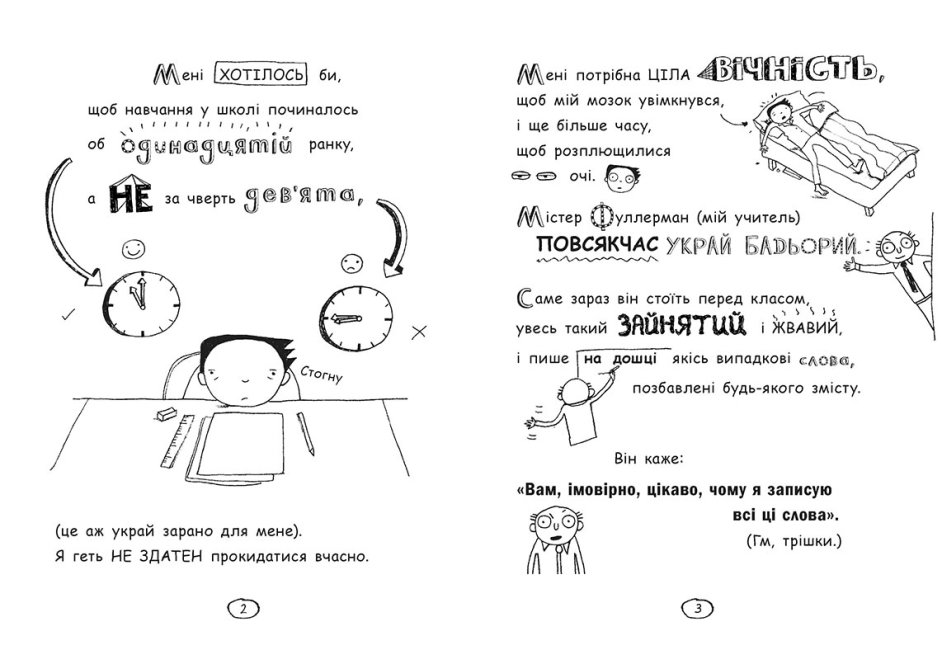 Мені ХОТІЛОСЬ би,
щоб навчання у школі починалось
об одинадцятій ранку,
а НЕ за чверть дев'ята,
Стогну
(це аж украй зарано для мене).
Я геть НЕ ЗДАТЕН прокидатися вчасно.
2
Мені потрібна ЦІЛА ВІЧНІСТЬ,
щоб мій мозок увімкнувся,
і ще більше часу,
щоб розплющилися
очі.
Містер Фуллерман (мій учитель)
ПОВСЯКЧАС УКРАЙ БАДЬОРИЙ.
Саме зараз він стоїть перед класом,
увесь такий ЗАЙНЯТИЙ і ЖВАВИЙ,
і пише на дошці якісь випадкові слова,
позбавлені будь-якого змісту.
Він каже:
«Вам, імовірно, цікаво, чому я записую
всі ці слова».
(Гм, трішки.)
3